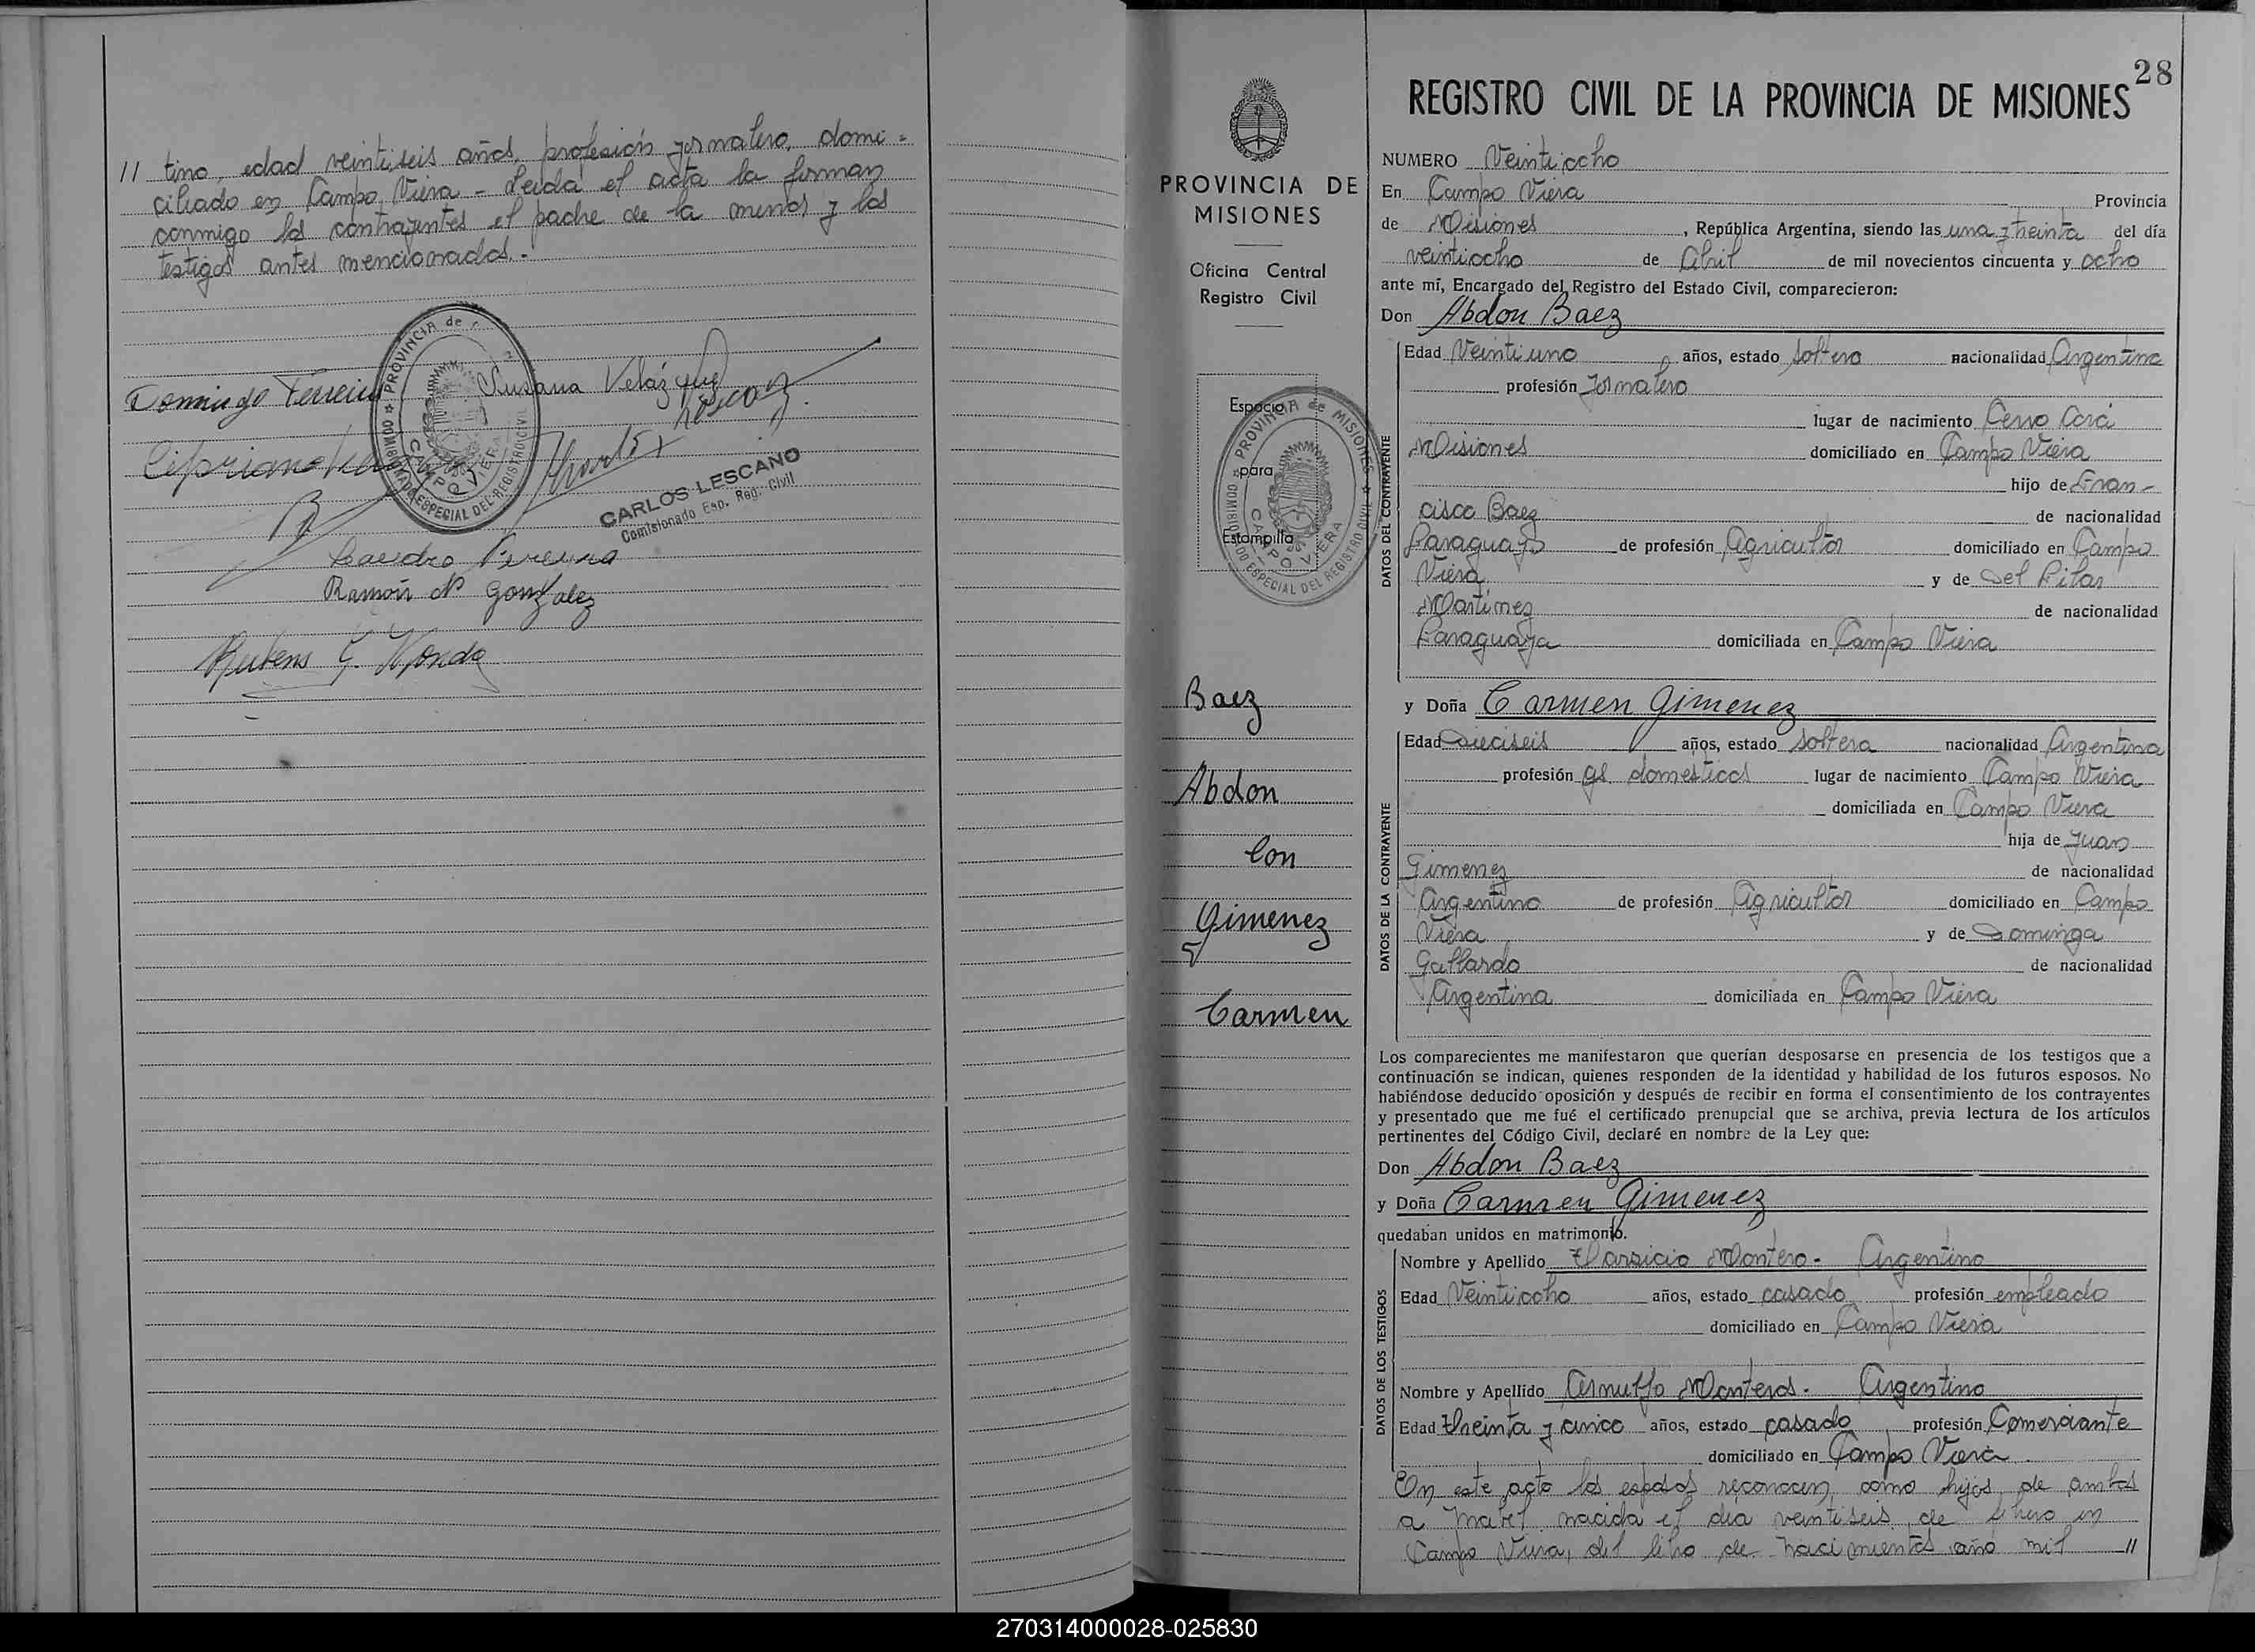 // tino, edad veintiseis años, profesión jornalero, domi=
ciliado en Campo Viera - Leida el acta la firman
conmigo los contrayentes el padre de la menor y los
testigos antes mencionados.-
PROVINCIA de
COMISIONADO ESPECIAL DEL REGISTRO CIVIL
CAMPO VIERA
Domingo Ferreira
Susana Velázquez
Cipriano
CARLOS LESCANO
Comisionado Esp. Reg. Civil
Leandro Pereira
Ramón N. Gonzalez
Rubens
28
PROVINCIA DE
MISIONES
Oficina Central
Registro Civil
Espacio
para
Estampilla
PROVINCIA de MISIONES
COMISIONADO ESPECIAL DEL REGISTRO CIVIL
CAMPO VIERA
Baez
Abdon
Con
Gimenez
Carmen
REGISTRO CIVIL DE LA PROVINCIA DE MISIONES
NUMERO Veintiocho
En Campo Viera Provincia
de Misiones, República Argentina, siendo las una y treinta del día
veintiocho de Abril de mil novecientos cincuenta y ocho
ante mí, Encargado del Registro del Estado Civil, comparecieron:
Don Abdon Baez
DATOS DEL CONTRAYENTE
Edad Veintiuno años, estado soltero nacionalidad Argentina
profesión Jornalero
lugar de nacimiento Cerro Corá
Misiones domiciliado en Campo Viera
hijo de Fran-
cisco Baez de nacionalidad
Paraguayo de profesión Agricultor domiciliado en Campo
Viera y de Del Pilar
Martinez de nacionalidad
Paraguaya domiciliada en Campo Viera
y Doña Carmen Gimenez
DATOS DE LA CONTRAYENTE
Edad Dieciseis años, estado soltera nacionalidad Argentina
profesión qs. domesticos lugar de nacimiento Campo Viera
domiciliada en Campo Viera
hija de Juan
Gimenez de nacionalidad
Argentino de profesión Agricultor domiciliado en Campo
Viera y de Dominga
Gallardo de nacionalidad
Argentina domiciliada en Campo Viera
Los comparecientes me manifestaron que querían desposarse en presencia de los testigos que a
continuación se indican, quienes responden de la identidad y habilidad de los futuros esposos. No
habiéndose deducido oposición y después de recibir en forma el consentimiento de los contrayentes
y presentado que me fué el certificado prenupcial que se archiva, previa lectura de los artículos
pertinentes del Código Civil, declaré en nombre de la Ley que:
Don Abdon Baez
y Doña Carmen Gimenez
quedaban unidos en matrimonio.
DATOS DE LOS TESTIGOS
Nombre y Apellido Montero.- Argentino
Edad Veintiocho años, estado casado profesión empleado
domiciliado en Campo Viera
Nombre y Apellido Arnulfo Monteros.- Argentino
Edad treinta y cinco años, estado casado profesión Comerciante
domiciliado en Campo Viera
En este acto los esposos reconocen como hijos de ambos
a Mabel nacida el dia veintiseis de Enero en
Campo Viera, del libro de nacimientos año mil //
270314000028-025830